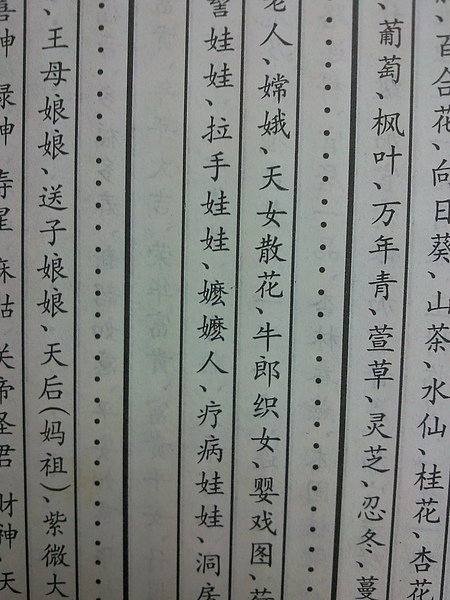 百合花、向日葵、山茶、水仙、桂花、杏花
、葡萄、枫叶、万年青、萱草、灵芝、忍冬、蔓
老人、嫦娥、天女散花、牛郎织女、婴戏图、荷
髻娃娃、拉手娃娃、嬷嬷人、疗病娃娃、洞房
、王母娘娘、送子娘娘、天后(妈祖)、紫微大
喜神 禄神 寿星 麻姑 关帝圣君 财神 天